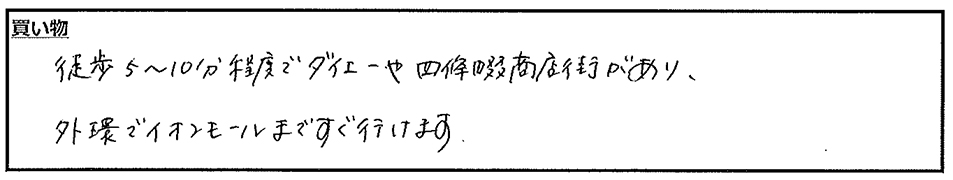 買い物
徒歩5～10分程度でダイエーや四條畷商店街があり、
外環でイオンモールまですぐ行けます.